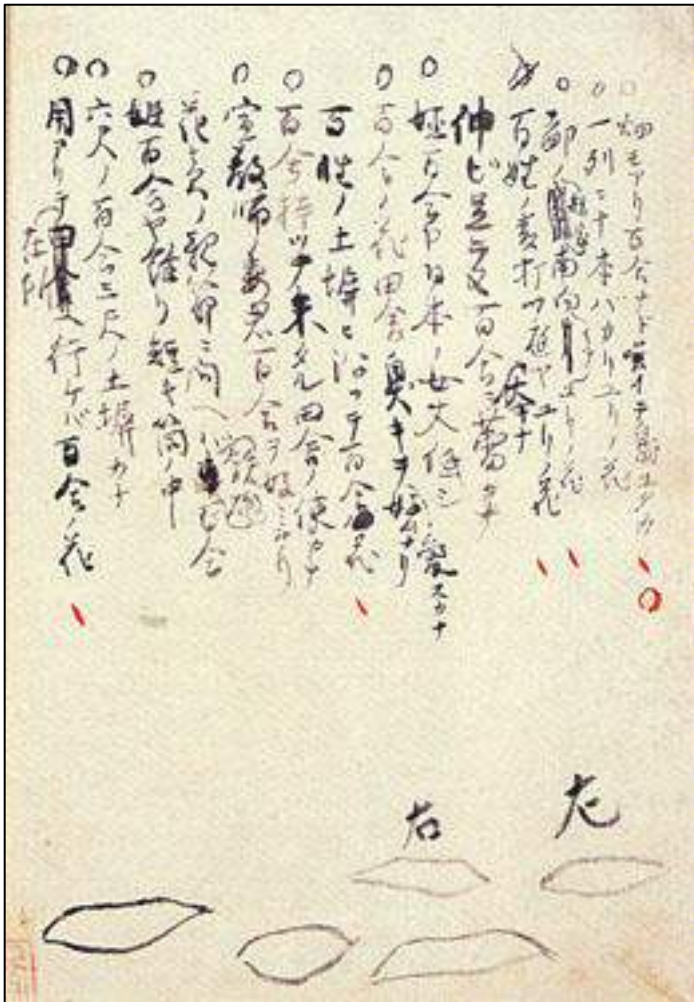 畑モアリ百合ナド咲イテ島ユタカ
一列ニ十本バカリユリノ花
南向ユリノ花
百姓ノ麦打ツ庭ヤユリノ花
伸ビ足ラヌ百合ニ大キナ蕾カナ
姫百合ヤ日本ノ女丈低シ
百合ノ花田舎臭キヲ愛スカナ
百姓ノ土塀ニ沿フテ百合ノ花
百合持ツテ来タル田舎ノ使カナ
宣教師ノ妻君百合ヲ好ミケリ
花売ノ親爺ニ問ヘバ百合
姫百合ヤ余リ短キ筒ノ中
六尺ノ百合三尺ノ土塀カナ
用アリテ在所ヘ行ケバ百合ノ花
左
右